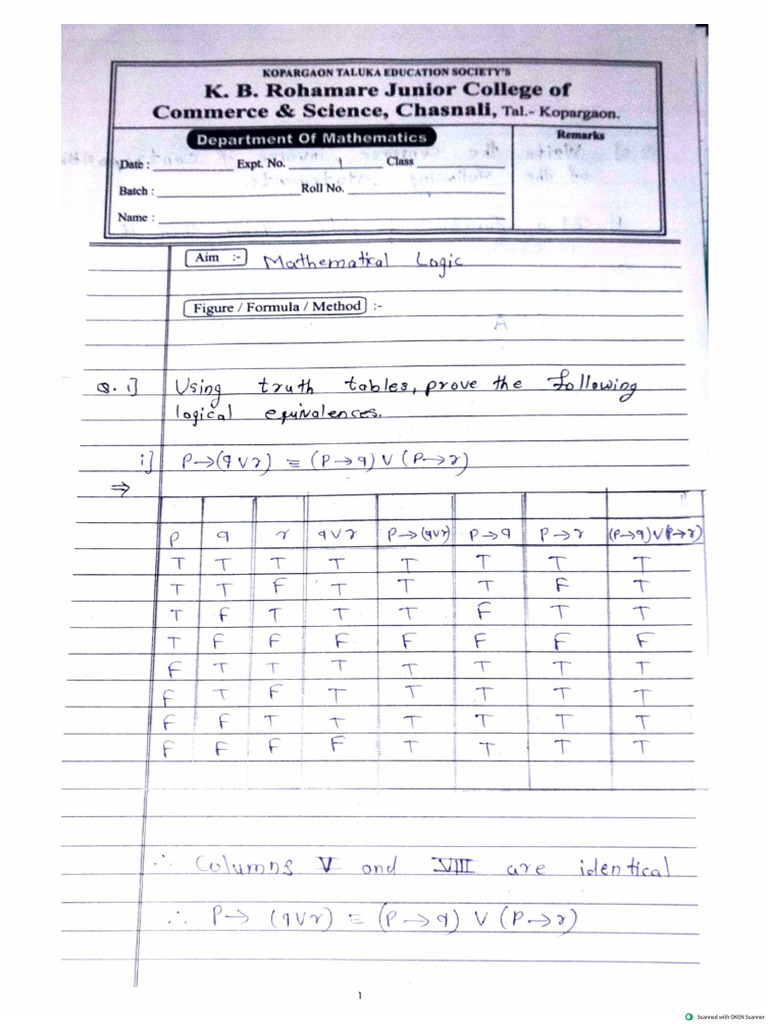 KOPARGAON TALUKA EDUCATION SOCIETY'S
K. B. Rohamare Junior College of
Commerce & Science, Chasnali, Tal.- Kopargaon.
Department Of Mathematics
Remarks
Date : Expt. No. 1 Class
Batch : Roll No.
Name :
Aim :- Mathematical Logic
Figure / Formula / Method :-
A
Q. 1] Using truth tables, prove the following
logical equivalences.
i] P→(q∨r) ≡ (P→q)∨(P→r)
⇒
P q r q∨r P→(q∨r) P→q P→r (P→q)∨(P→r)
T T T T T T T T
T T F T T T F T
T F T T T F T T
T F F F F F F F
F T T T T T T T
F T F T T T T T
F F T T T T T T
F F F F T T T T
∴ Columns V and VIII are identical
∴ P→ (q∨r) ≡ (P→q) ∨ (P→r)
1
Scanned with OKEN Scanner